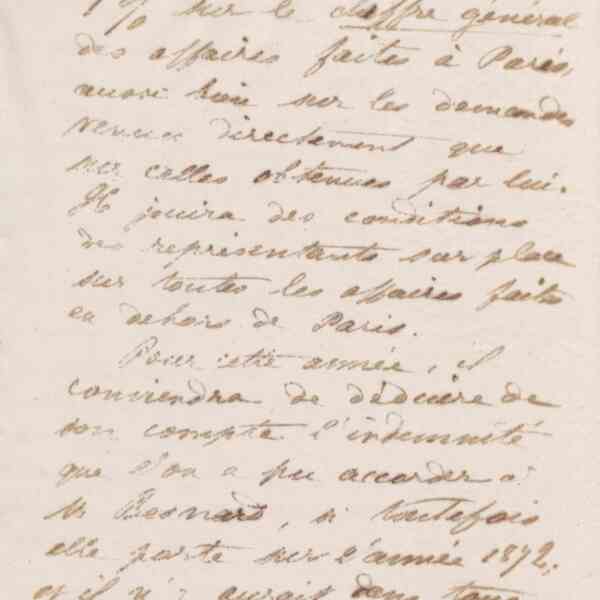 % sur le chiffre général
des affaires faites à Paris,
aussi bien sur les demandes
venues directement que
sur celles obtenues par lui.
Il jouira des conditions
des représentants sur place
sur toutes les affaires faites
en dehors de Paris.
Pour cette année, il
conviendra de déduire de
son compte l'indemnité
que l'on a pu accorder à
Mr Besnard, si toutefois
elle porte sur l'année 1872,
et il n'y aurait dans tous